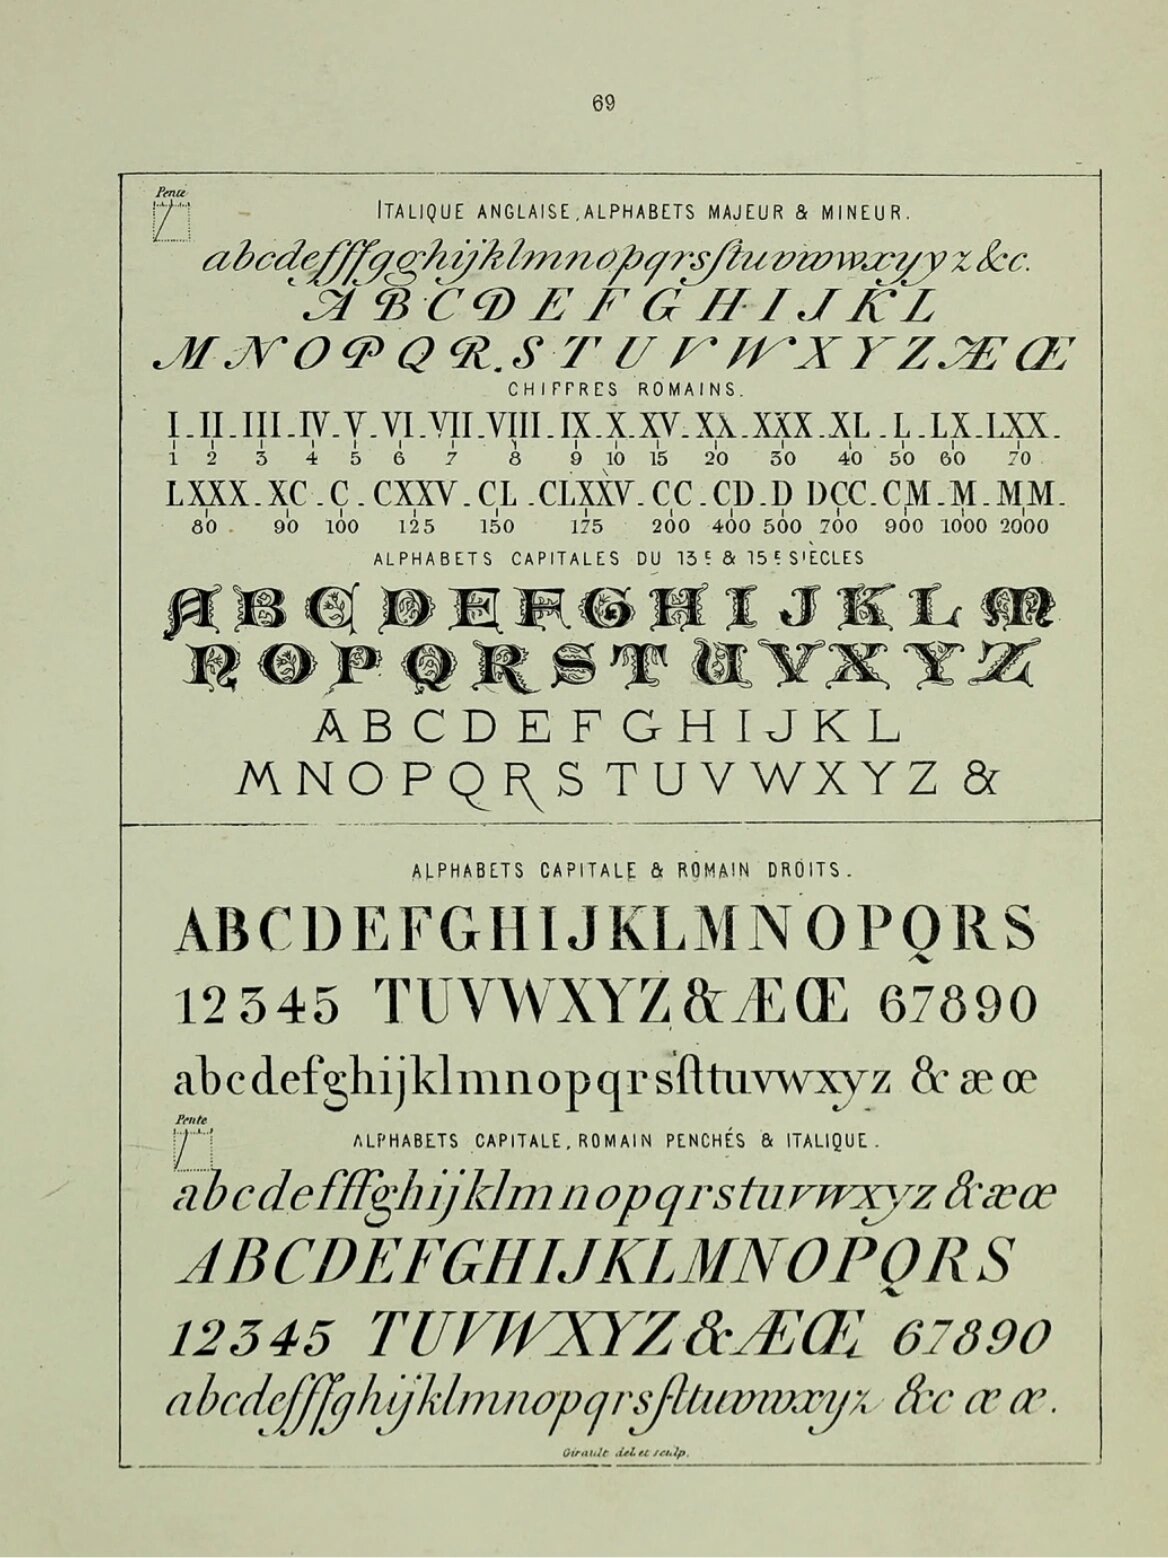 69
Pente
ITALIQUE ANGLAISE, ALPHABETS MAJEUR & MINEUR.
abcdefffgghijklmnopqrsſtuvwwxyyz &c.
A B C D E F G H I J K L
M N O P Q R. S T U V W X Y Z Æ Œ
CHIFFRES ROMAINS.
I. II. III. IV. V. VI. VII. VIII. IX. X. XV. XX. XXX. XL. L. LX. LXX.
1 2 3 4 5 6 7 8 9 10 15 20 30 40 50 60 70
LXXX. XC. C. CXXV. CL. CLXXV. CC. CD. D DCC. CM. M. MM.
80 90 100 125 150 175 200 400 500 700 900 1000 2000
ALPHABETS CAPITALES DU 13E & 15E SIÈCLES
A B C D E F G H I J K L M
N O P Q R S T U V X Y Z
A B C D E F G H I J K L
M N O P Q R S T U V W X Y Z &
ALPHABETS CAPITALE & ROMAIN DROITS.
ABCDEFGHIJKLMNOPQRS
12345 TUVWXYZ&ÆŒ 67890
abcdefghijklmnopqrsſttuvwxyz & æ œ
Pente
ALPHABETS CAPITALE, ROMAIN PENCHÉS & ITALIQUE.
abcdefffghijklmnopqrstuvwxyz & æ œ
ABCDEFGHIJKLMNOPQRS
12345 TUVWXYZ&ÆŒ 67890
abcdefffghijklmnopqrsſttuvwxyz &c æ œ.
Girault del et sculp.